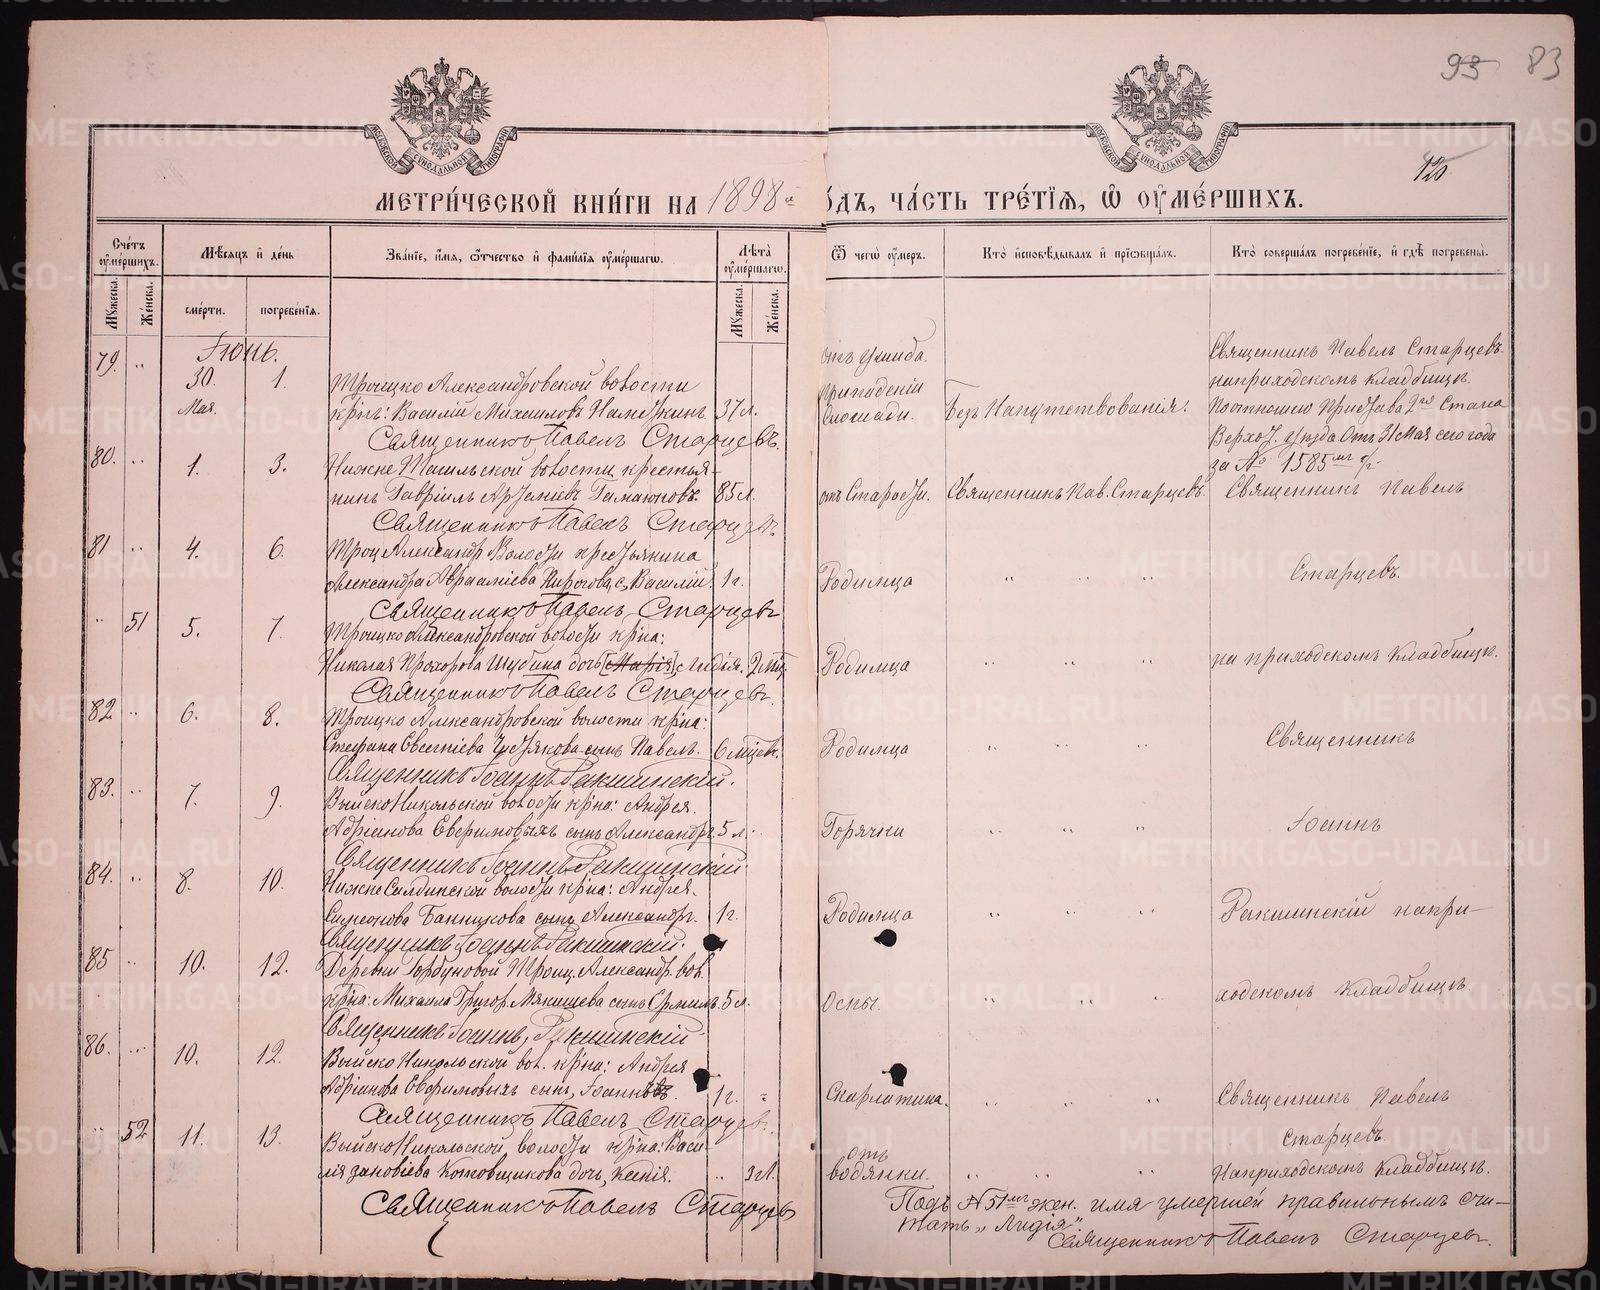 93 83
120
МЕТРИЧЕСКОЙ КНИГИ НА 1898й ГОДЪ, ЧАСТЬ ТРЕТІЯ, Ѿ ОУМЕРШИХЪ.
Счетъ оумершихъ. Мѣсяцъ и день Званіе, имя, отчество и фамилія оумершагѡ. Лѣта оумершагѡ. Ѿ чегѡ оумеръ. Кто исповѣдывалъ и пріобщалъ. Кто совершалъ погребеніе, и гдѣ погребены.
Мужеска. Женска. смерти. погребенія. Мужеска. Женска.
Іюнь.
79. „ 30. Мая. 1.
Троицко Александровской волости
кр͠нъ: Василій Михаиловъ 37 л.
отъ ушиба. при паденіи лошади. Безъ Напутствованія.
Священникъ Павелъ Старцевъ.
на приходскомъ кладбищѣ.
По отношенію Пристава 2го Стана
Верхот. уѣзда Отъ 31 Мая сего года
за № 1585мъ
Священникъ Павелъ Старцевъ.
80. „ 1. 3.
Нижне Тагильской волости крестья-
нинъ Гавріилъ 85 л.
отъ Старости. Священникъ Пав. Старцевъ. Священникъ Павелъ
Священникъ Павелъ Старцевъ.
81 „ 4. 6.
Троиц Александр Волости крестьянина
Александра Авраамиева с. Василій. 1 г.
Родимца „ „ „ Старцевъ.
Священникъ Павелъ Старцевъ
„ 51 5. 7.
Троицко Александровской волости кр͠на:
Николая Прохорова Шубина дочь [Марія] Лидія. 2 мц.
Родимца „ „ „ на приходскомъ кладбищѣ.
Священникъ Павелъ Старцевъ.
82. „ 6. 8.
Троицко Александровской волости кр͠на:
Стефана Евгеніева сынъ Павелъ. 6 мцевъ.
Родимца „ „ „ Священникъ
Священникъ Іоаннъ Ракшинскій.
83. „ 7. 9.
Выйско Никольской волости кр͠на: Андрея
Адріанова Евфимовыхъ сынъ Александръ 5 л.
Горячки „ „ „ Іоаннъ
Священникъ Іоаннъ Ракшинскій.
84. „ 8. 10.
Нижне Салдинской волости кр͠на: Андрея
Симеонова Банникова сынъ Александръ. 1 г.
Родимца „ „ „ Ракшинскій на при-
Священникъ Іоаннъ Ракшинскій.
85 „ 10. 12.
Деревни Горбуновой Троиц. Александр. вол.
кр͠на: Михаила Григор. Мякишева сынъ Ермилъ. 5 л.
Оспы. „ „ „ ходскомъ кладбищѣ
Священникъ Іоаннъ Ракшинскій
86. „ 10. 12.
Выйско Никольской вол. кр͠на: Андрея
Адріанова Евфимовыхъ сынъ, Іоаннъ. 1 г. „
Скарлатина. „ „ „ Священникъ Павелъ
Священникъ Павелъ Старцевъ.
Старцевъ.
„ 52 11. 13.
Выйско Никольской волости кр͠на: Васи-
лія Зиновіева Котовщикова дочь, Ксенія. „ 3 г.
отъ водянки. „ „ „ На приходскомъ кладбищѣ.
Священникъ Павелъ Старцевъ
Подъ № 51мъ жен. имя умершей правильнымъ счи-
тать „Лидія“.
Священникъ Павелъ Старцевъ.